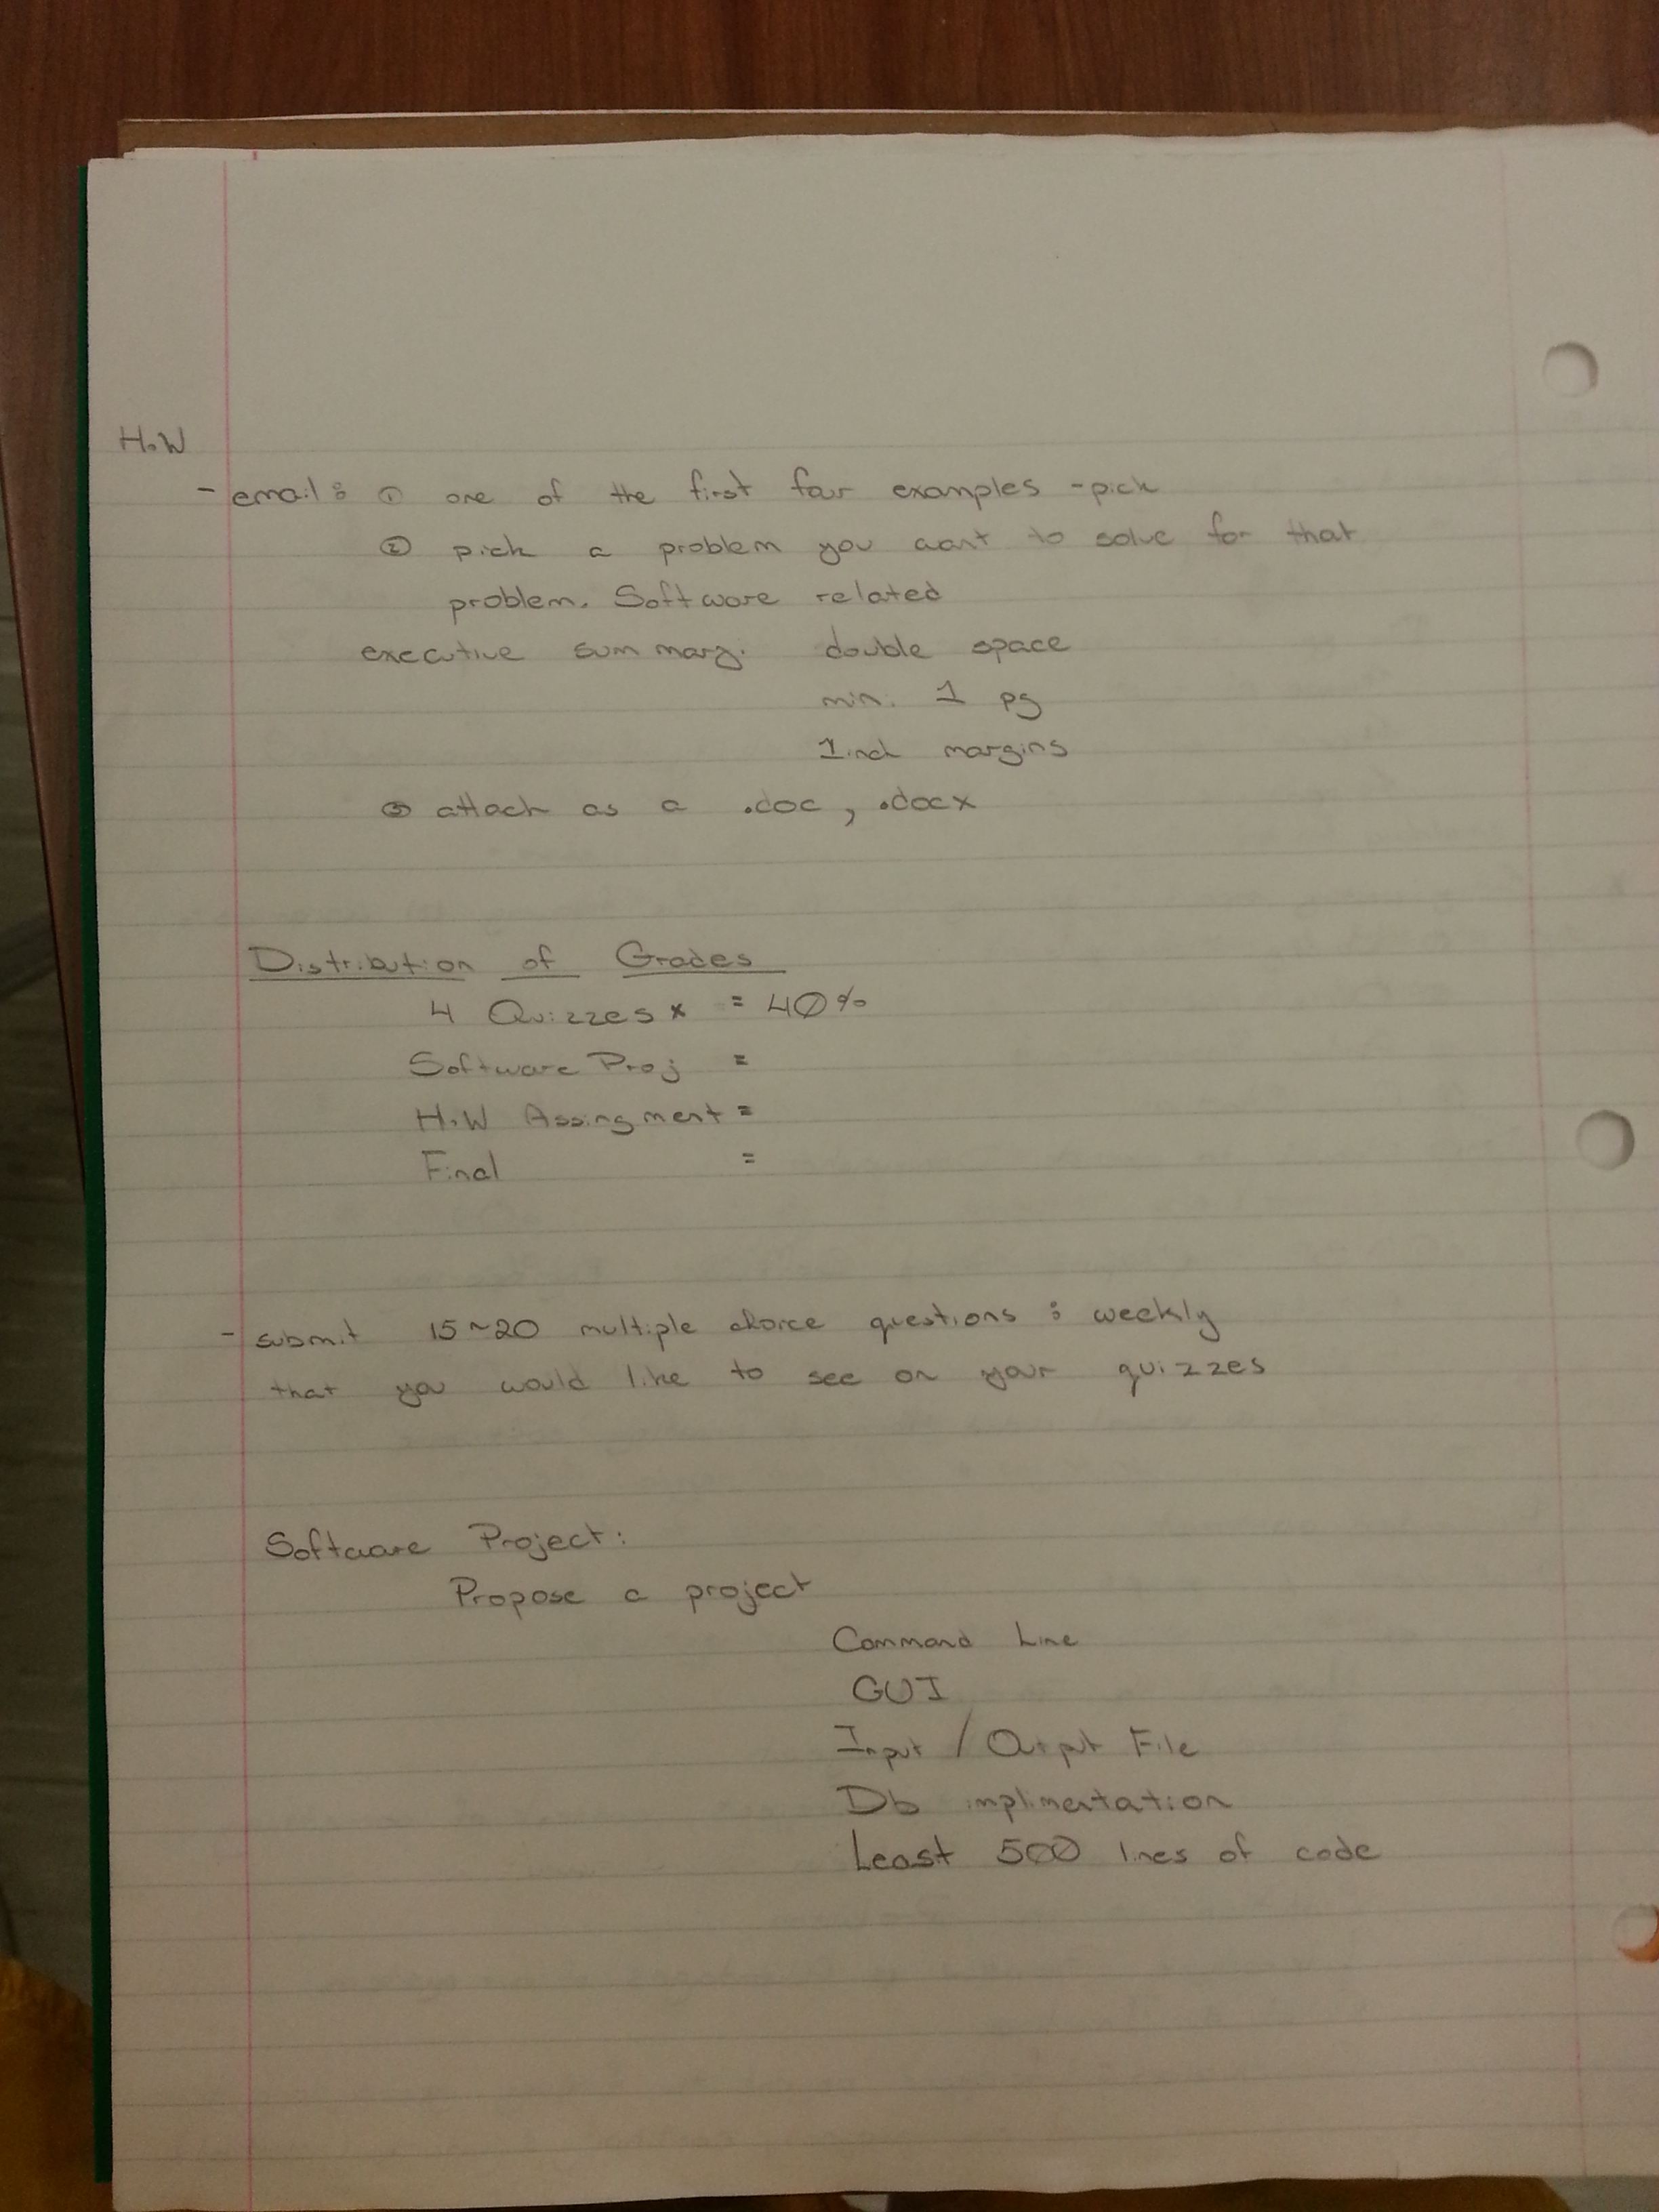 H.W
- email: ① one of the first four examples - pick
② pick a problem you want to solve for that
problem. Software related
executive summary. double space
min. 1 pg
1 inch margins
③ attach as a .doc, .docx
Distribution of Grades
4 Quizzes x = 40%
Software Proj =
H.W Assingment =
Final =
- submit 15~20 multiple choice questions : weekly
that you would like to see on your quizzes
Software Project:
Propose a project
Command Line
GUI
Input / Output File
Db implimentation
Least 500 lines of code